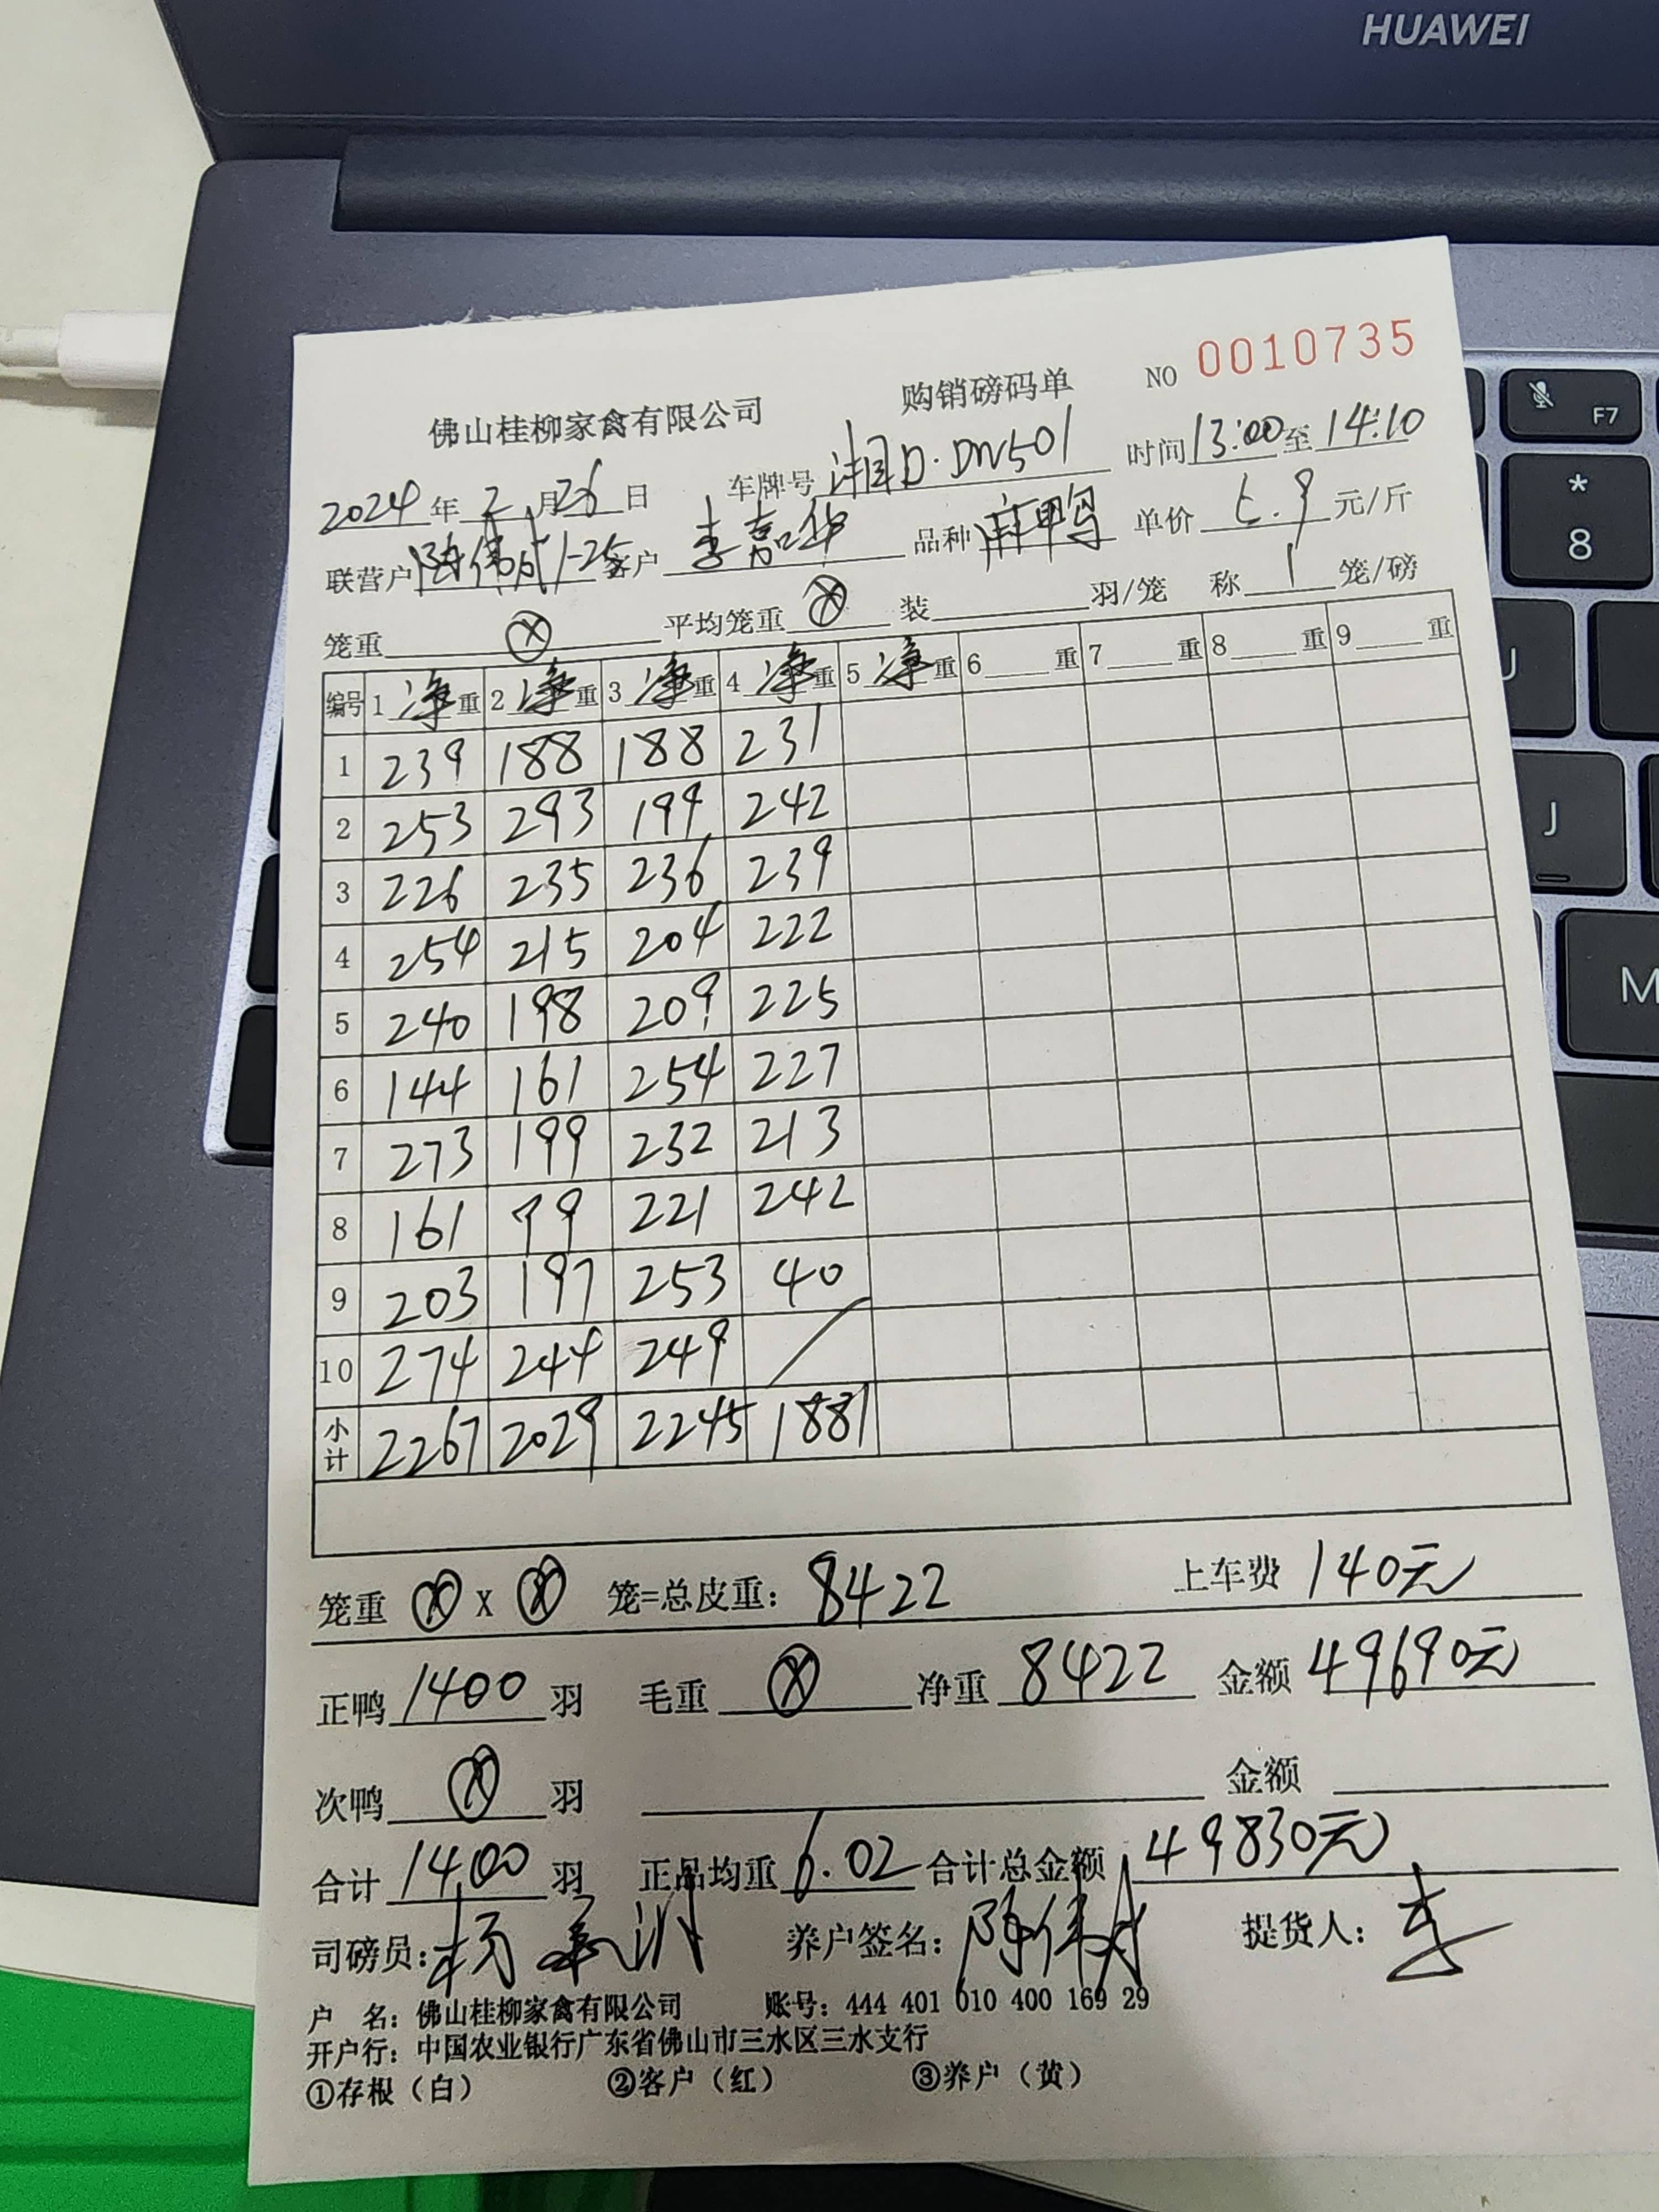 HUAWEI
F7
*
8
J
M
NO 0010735
佛山桂柳家禽有限公司 购销磅码单
2024年2月26日 车牌号 湘D·DN501 时间13:00至14:10
联营户 陈伟成1-25 客户 李嘉华 品种 麻鸭 单价 5.9 元/斤
笼重 ⓧ 平均笼重 ⓧ 装 羽/笼 称 1 笼/磅
编号 1 净重 2 净重 3 净重 4 净重 5 净重 6 重 7 重 8 重 9 重
1 239 188 188 231
2 253 293 199 242
3 226 235 236 239
4 254 215 204 222
5 240 198 209 225
6 144 161 254 227
7 273 199 232 213
8 161 99 221 242
9 203 197 253 40
10 274 244 249 /
小计 2267 2029 2245 1881
笼重 ⓧ X ⓧ 笼=总皮重: 8422 上车费 140元
正鸭 1400 羽 毛重 ⓧ 净重 8422 金额 49690元
次鸭 ⓧ 羽 金额
合计 1400 羽 正品均重 6.02 合计总金额 49830元
司磅员: 杨 养户签名: 陈伟成 提货人: 李
户 名: 佛山桂柳家禽有限公司 账号: 444 401 010 400 169 29
开户行: 中国农业银行广东省佛山市三水区三水支行
①存根（白） ②客户（红） ③养户（黄）